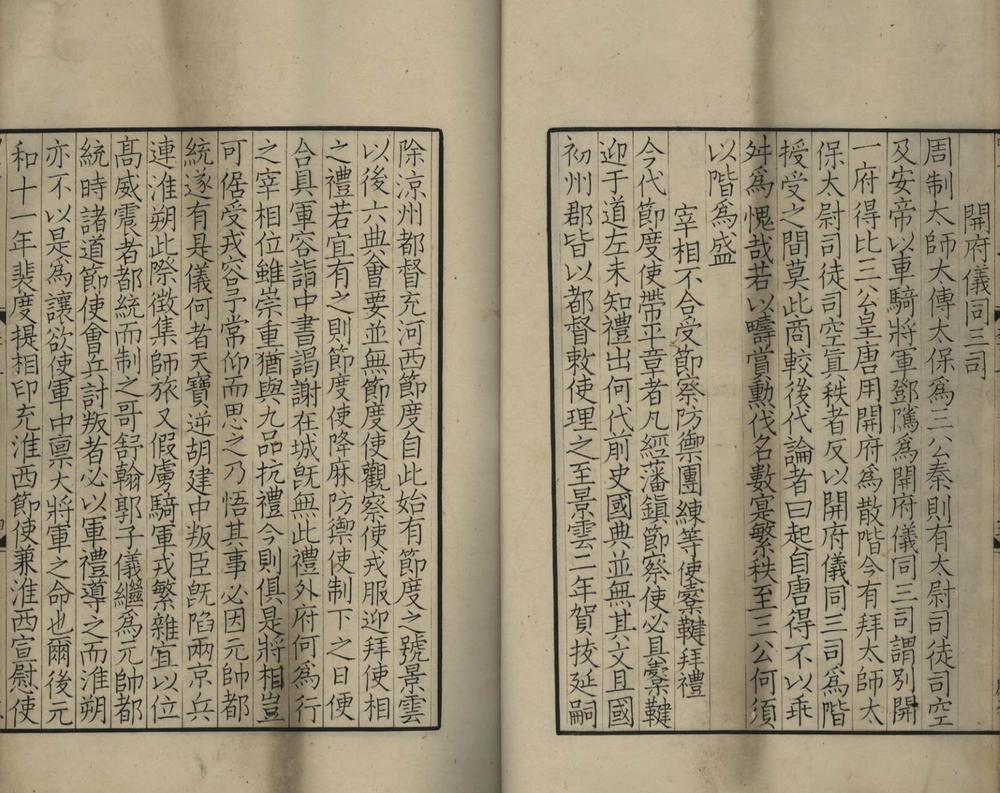 開府儀同三司
周制太師太傅太保爲三公秦則有太尉司徒司空
及安帝以車騎將軍鄧騭爲開府儀同三司謂別開
一府得比三公皇唐用開府爲散階今有拜太師太
保太尉司徒司空眞秩者反以開府儀同三司爲階
授受之間莫此商較後代論者曰起自唐得不以乖
舛爲愧哉若以疇賞勲伐名數寔繁秩至三公何須
以階爲盛
宰相不合受節察防禦團練等使櫜鞬拜禮
今代節度使帶平章者凡經藩鎭節察使必具櫜鞬
迎于道左未知禮出何代前史國典並無其文且國
初州郡皆以都督敕使理之至景雲二年賀拔延嗣
除涼州都督充河西節度自此始有節度之號景雲
以後六典會要並無節度使觀察使戎服迎拜使相
之禮若宜有之則節度使降麻防禦使制下之日便
合具軍容詣中書謁謝在城旣無此禮外府何爲行
之宰相位雖崇重猶與九品抗禮今則俱是將相豈
可倨受戎容予常仰而思之乃悟其事必因元帥都
統遂有是儀何者天寶逆胡建中叛臣旣陷兩京兵
連淮朔此際徵集師旅又假虜騎軍戎繁雜宜以位
高威震者都統而制之哥舒翰郭子儀繼爲元帥都
統時諸道節使會兵討叛者必以軍禮導之而淮朔
亦不以是爲讓欲使軍中禀大將軍之命也爾後元
和十一年裴度提相印充淮西節使兼淮西宣慰使